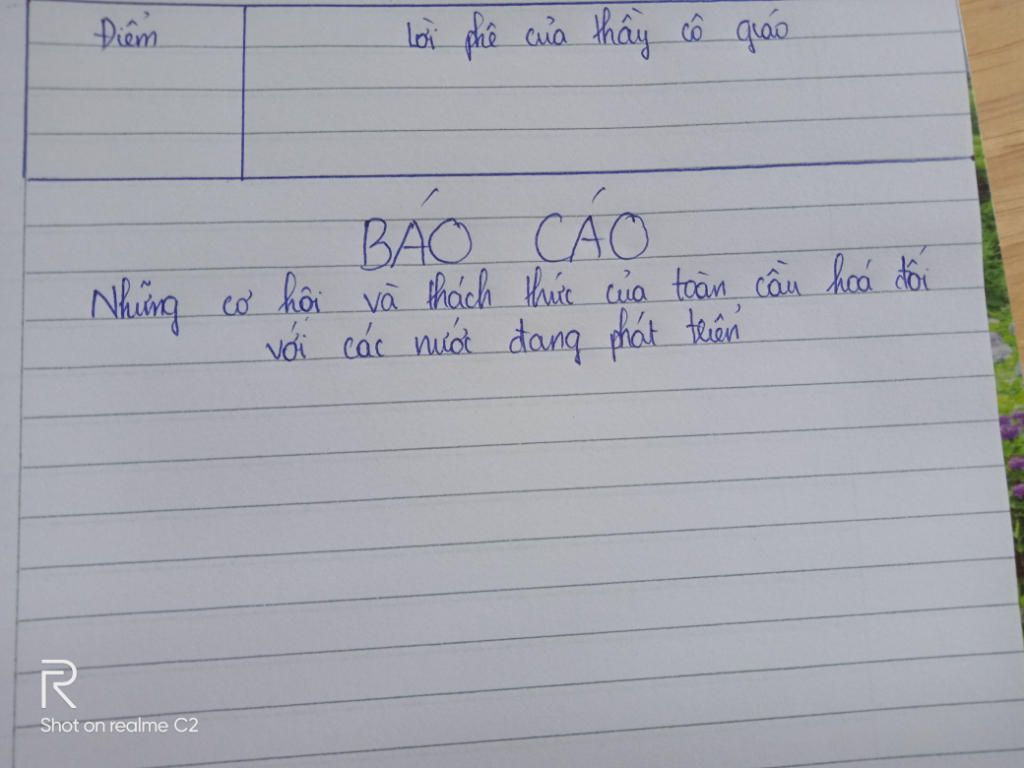 Điểm lời phê của thầy cô giáo
BÁO CÁO
Những cơ hội và thách thức của toàn cầu hoá đối
với các nước đang phát triển
R
Shot on realme C2